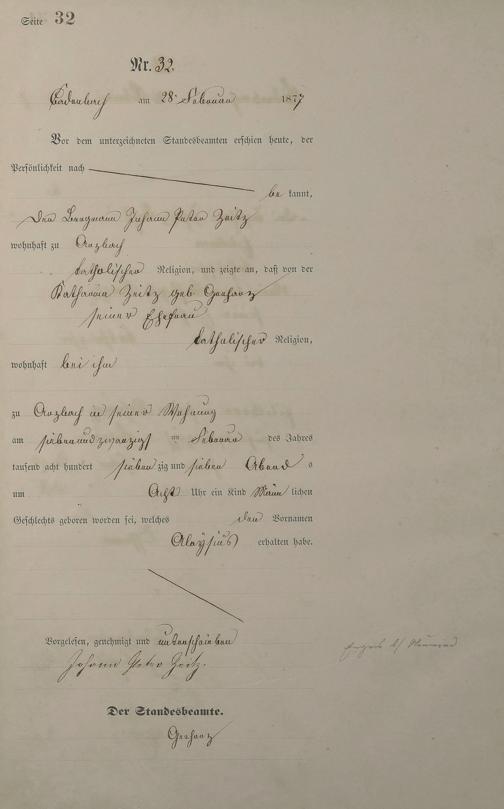 Seite 32
Nr. 32.
Cadenbach am 28 Februar 1877
Vor dem unterzeichneten Standesbeamten erschien heute, der
Persönlichkeit nach
be kannt,
Der Bergmann Johann Peter Zeitz
wohnhaft zu Arzbach
katholischer Religion, und zeigte an, daß von der
Katharina Zeitz geb Gerharz
seiner Ehefrau
katholischer Religion,
wohnhaft bei ihm
zu Arzbach in seiner Wohnung
am siebenundzwanzigst en Februar des Jahres
tausend acht hundert sieben zig und sieben Abend s
um Acht Uhr ein Kind Männ lichen
Geschlechts geboren worden sei, welches den Vornamen
Aloysius erhalten habe.
Vorgelesen, genehmigt und unterschrieben
Johann Peter Zeitz.
Der Standesbeamte.
Gerharz